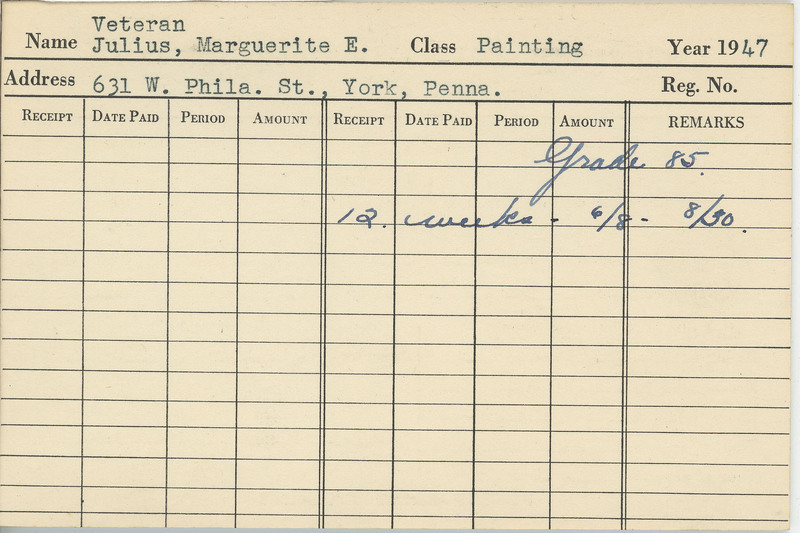 Veteran
Name Julius, Marguerite E. Class Painting Year 1947
Address 631 W. Phila. St., York, Penna. Reg. No.
RECEIPT DATE PAID PERIOD AMOUNT RECEIPT DATE PAID PERIOD AMOUNT REMARKS
Grade 85.
12. weeks - 6/8 - 8/30.